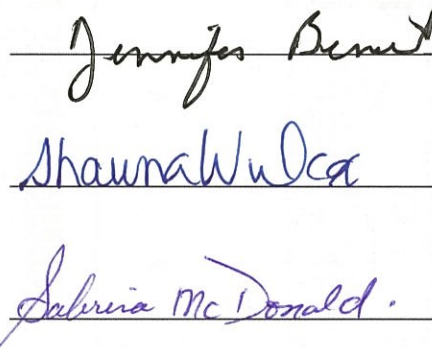 Jennifer
Shauna Wilcox
Sabrina McDonald.